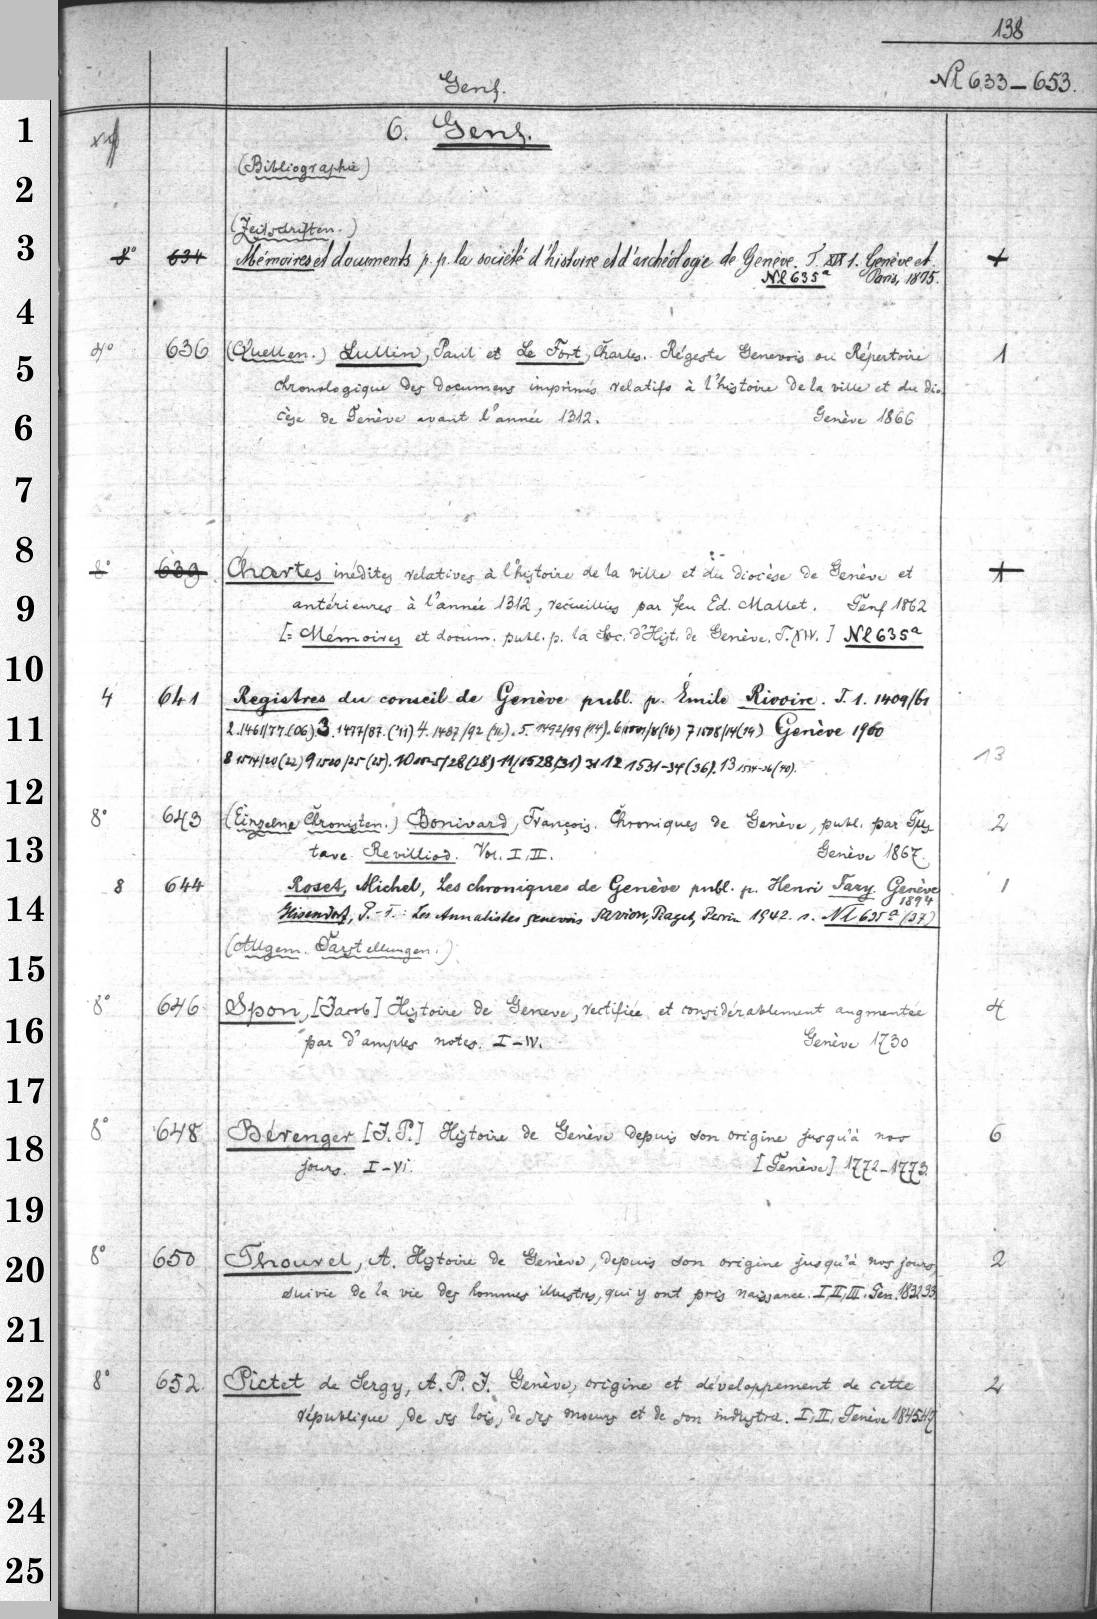 138
Genf.
Nl 633–653.
6. Genf.
(Bibliographie)
(Zeitschriften.)
8° 634 Mémoires et documents p. p. la société d'histoire et d'archéologie de Genève. T. XIV 1. Genève et 1
Nl 635a Paris, 1875.
4° 636 (Quellen.) Lullin, Paul et Le Fort, Charles. Régeste Genevois ou Répertoire 1
chronologique des documens imprimés relatifs à l'histoire de la ville et du dio-
cèse de Genève avant l'année 1312. Genève 1866
8° 639 Chartes inédites relatives à l'histoire de la ville et du diocèse de Genève et 1
antérieures à l'année 1312, recueillies par feu Ed. Mallet. Genf 1862
[= Mémoires et docum. publ. p. la Soc. d'Hist. de Genève. T. XIV.] Nl 635a
4 641 Registres du conseil de Genève publ. p. Émile Rivoire. T. 1. 1409/61
2. 1461/77 (06) 3. 1477/87 ('11) 4. 1487/92 (11). 5. 1492/99 (14). 6 1501/8 (16) 7 1508/14 (19) Genève 1900
8 1514/20 (22) 9 1520/25 (25). 10 1525/28 (28) 11 (1528/31) 31 12 1531-34 (36). 13 1534-36 (40). 13
8° 643 (Einzelne Chronisten.) Bonivard, François. Chroniques de Genève, publ. par Gus- 2
tave Revilliod. Vol. I, II. Genève 1867.
8 644 Roset, Michel, Les chroniques de Genève publ. p. Henri Fazy. Genève 1
1894
Geisendorf, P.-F.: Les Annalistes genevois Savion, Piaget, Perrin 1942. s. Nl 635a (37)
(Allgem. Darstellungen.)
8° 646 Spon, [Jacob] Histoire de Geneve, rectifiée et considérablement augmentée 4
par d'amples notes. I–IV. Genève 1730
8° 648 Bérenger [J. P.] Histoire de Genève depuis son origine jusqu'à nos 6
jours. I–VI. [Genève] 1772–1773.
8° 650 Thourel, A. Histoire de Genève, depuis son origine jusqu'à nos jours, 2
suivie de la vie des hommes illustres, qui y ont pris naissance. I, II, III. Gen. 1832.33.
8° 652 Pictet de Sergy, A. P. J. Genève, origine et développement de cette 2
république, de ses lois, de ses moeurs et de son industrie. I, II, Genève 1845.47
1
2
3
4
5
6
7
8
9
10
11
12
13
14
15
16
17
18
19
20
21
22
23
24
25